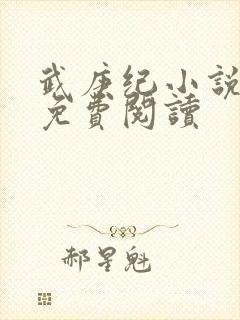 武庚纪小說
免費閱讀
郝星魁